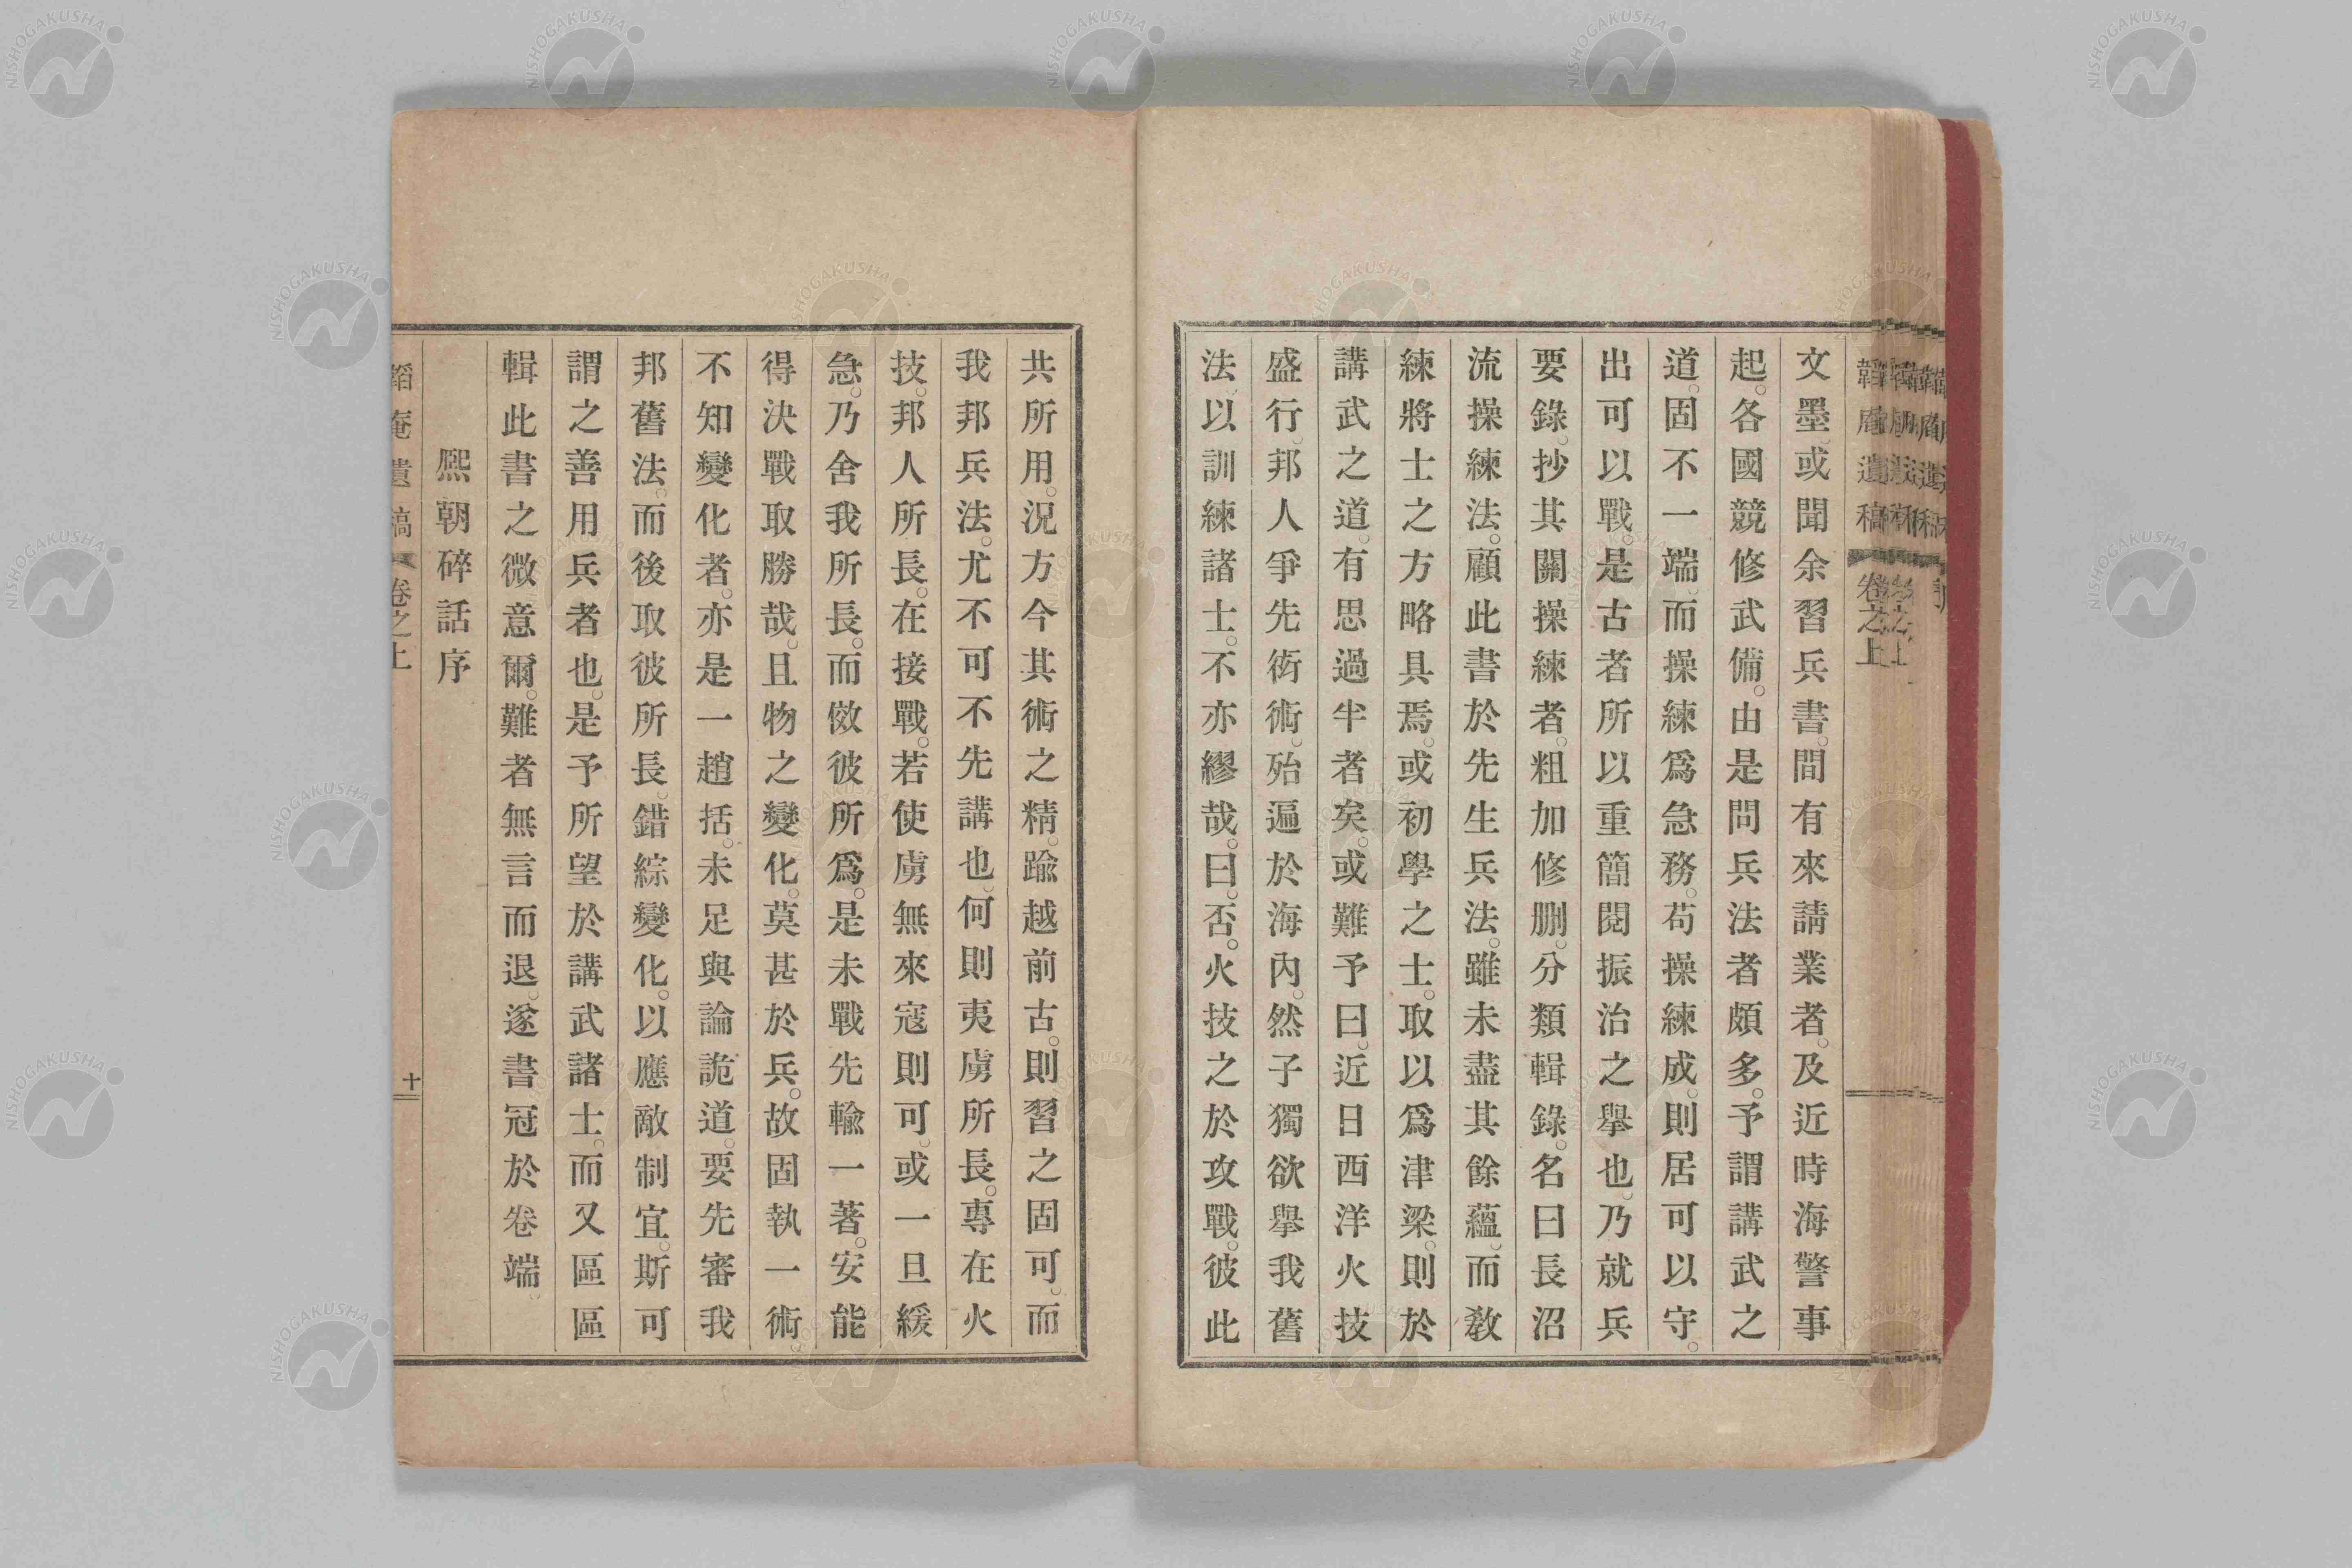 文墨。或聞余習兵書。間有來請業者。及近時海警事
起。各國競修武備。由是問兵法者頗多。予謂講武之
道。固不一端。而操練爲急務。苟操練成。則居可以守。
出可以戰。是古者所以重簡閱振治之擧也。乃就兵
要錄。抄其關操練者。粗加修刪。分類輯錄。名曰長沼
流操練法。顧此書於先生兵法。雖未盡其餘蘊。而敎
練將士之方略具焉。或初學之士。取以爲津梁。則於
講武之道。有思過半者矣。或難予曰。近日西洋火技
盛行。邦人爭先衒術。殆遍於海內。然子獨欲擧我舊
法。以訓練諸士。不亦繆哉。曰。否。火技之於攻戰。彼此
韜庵遺稿 卷之上
共所用。況方今其術之精。踰越前古。則習之固可。而
我邦兵法。尤不可不先講也。何則夷虜所長。專在火
技。邦人所長。在接戰。若使虜無來寇則可。或一旦緩
急。乃舍我所長。而傚彼所爲。是未戰先輸一著。安能
得決戰取勝哉。且物之變化。莫甚於兵。故固執一術
不知變化者。亦是一趙括。未足與論詭道。要先審我
邦舊法。而後取彼所長。錯綜變化。以應敵制宜。斯可
謂之善用兵者也。是予所望於講武諸士。而又區區
輯此書之微意爾。難者無言而退。遂書冠於卷端。
熙朝碎話序
韜庵遺稿 卷之上 十
NISHOGAKUSHA